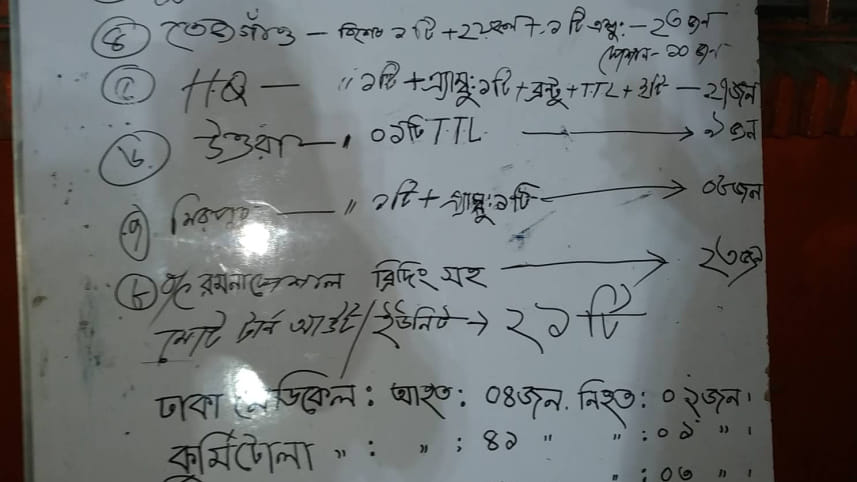 ④ তেজগাঁও — বিশেষ ১টি + ২২০০০ + ১টি এম্বু: — ২৩ জন
স্পেশাল- ১০ জন
⑤ HQ — " ১টি + এ্যাম্বু: ১টি + ব্রন্টু + TTL + ২টি — ২৭জন
⑥ উত্তরা — " ০১টি TTL. → ৯ জন
⑦ মিরপুর — " ১টি + এ্যাম্বু: ১টি → ০৬জন
⑧ % রমনা স্পেশাল ব্রিদিং সহ → ২৩জন
মোট টার্ন আউট/ইউনিট → ২১টি
ঢাকা মেডিকেল : আহত : ০৪জন. নিহত : ০২জন।
কুর্মিটোলা " : " : ৪১ " " : ০১ " ।
" : ০৩ " ।